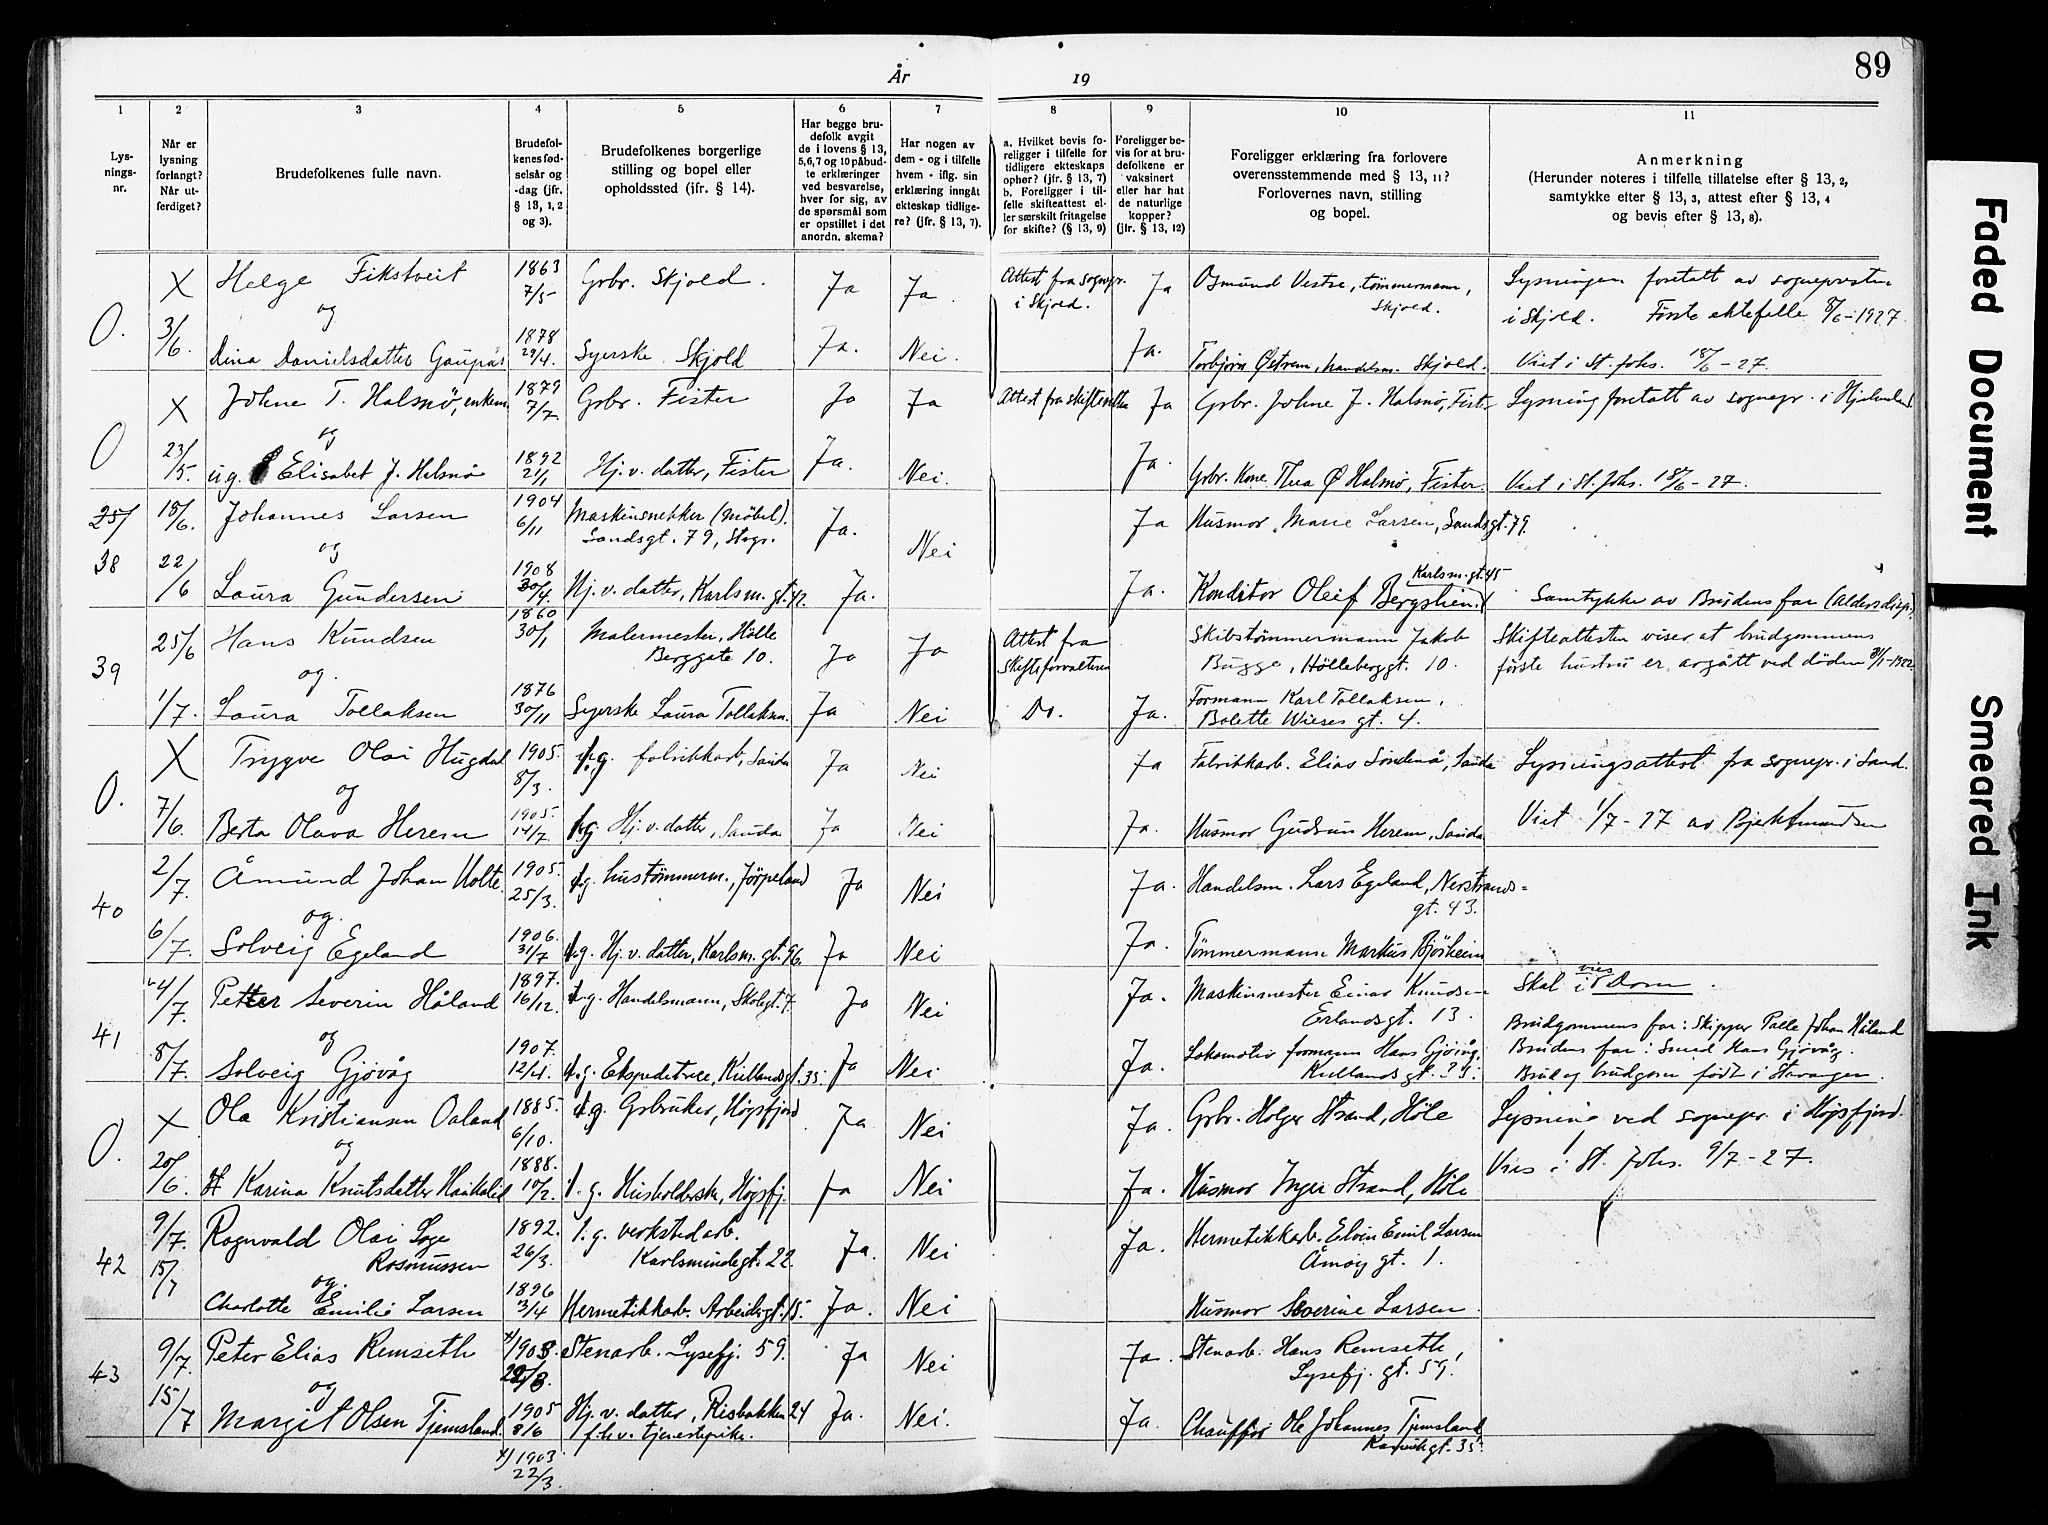 89
År 19
1 2 3 4 5 6 7 8 9 10 11
Lys-
nings-
nr.
Når er
lysning
forlangt?
Når ut-
ferdiget?
Brudefolkenes fulle navn.
Brudefol-
kenes fød-
selsår og
-dag (jfr.
§ 13, 1, 2
og 3).
Brudefolkenes borgerlige
stilling og bopel eller
opholdssted (ifr. § 14).
Har begge bru-
defolk avgit
de i lovens § 13,
5, 6, 7 og 10 påbud-
te erklæringer
ved besvarelse,
hver for sig, av
de spørsmål som
er opstillet i det
anordn. skema?
Har nogen av
dem - og i tilfelle
hvem - iflg. sin
erklæring inngåt
ekteskap tidlige-
re? (jfr. § 13, 7).
a. Hvilket bevis fo-
religger i tilfelle for
tidligere ekteskaps
ophør? (jfr. § 13, 7)
b. Foreligger i til-
felle skifteattest el-
ler særskilt fritagelse
for skifte? (§ 13, 9)
Foreligger be-
vis for at bru-
defolkene er
vaksinert
eller har hat
de naturlige
kopper?
(jfr. § 13, 12)
Foreligger erklæring fra forlovere
overensstemmende med § 13, 11?
Forlovernes navn, stilling
og bopel.
Anmerkning
(Herunder noteres i tilfelle tillatelse efter § 13, 2,
samtykke efter § 13, 3, attest efter § 13, 4
og bevis efter § 13, 8).
O. X Helge Fikstveit 1863 7/5 Grbr. Skjold. Ja Ja. Attest fra sognepr. i Skjold. Ja Osmund Vestre, tømmermann, Skjold. Lysningen foretatt av sogneprsten
i Skjold. Første ektefelle 8/6-1927.
og
3/6 Dina Danielsdatter Gaupås 1878 29/4. Syerske Skjold Ja. Nei. Ja. Torbjørn Østrem, handelsm. Skjold. Viet i St. Johs. 18/6-27.
O X Johne T. Halsnø, enkem. 1879 7/7. Grbr. Fister Ja Ja Attest fra skifteretten Ja Grbr. Johne J. Halsnø, Fister Lysning foretatt av sognepr. i Hjelmeland
og
23/5. ug. Elisabet J. Halsnø 1892 21/1 Hj. v. datter, Fister Ja. Nei. Ja. Grbr. Kone Thea Ø Halsnø, Fister. Viet i St. Johs. 18/6-27.
25/ 15/6. Johannes Larsen 1904 6/11 Maskinsnekker (møbel).
Sandsgt. 79, Stvgr. Ja. Nei Ja Husmor Marie Larsen, Sandsgt. 79.
og
38 22/6 Laura Gundersen 1908 30/4. Hj. v. datter, Karlsm. gt. 42. Ja. Ja. Konditor Oleif Bergslien Karlsm. gt. 45 Samtykke av Brudens far (Aldersdisp.)
39 25/6 Hans Knudsen 1860 30/1 Malermester, Hølle
Berggate 10. Ja Ja Attest fra
Skifteforvalteren Skibstømmermann Jakob
Bugge, Hølleberggt. 10. Skifteattesten viser at brudgommens
første hustru er avgått ved døden 31/1-1922
og.
1/7. Laura Tollaksen 1876 30/11 Syerske Laura Tollaksen. Ja Nei Do. Ja. Formann Karl Tollaksen,
Bolette Wieses gt. 4.
O. X Trygve Olai Hugdal 1905. 8/3. fabrikkarb, Sauda Ja Nei Ja Fabrikkarb. Elias Søndenå, Sauda Lysningsattest fra sognepr. i Sand.
og
7/6. Berta Olava Herem 1905. 14/7. Hj. v. datter, Sauda Ja Nei Ja. Husmor Gudrun Herem, Sauda Viet 1/7-27 av
40 2/7. Åmund Johan Holte. 1905. 25/3. hustømmerm., Jørpeland Ja Nei Ja. Handelsm. Lars Egeland, Nerstrands=
gt. 43.
og.
6/7. Solveig Egeland 1906. 31/7 Hj. v. datter, Karlsm. gt. 96. Ja Nei Ja. Tømmermann Markus Bjørheim
41 4/7. Petter Severin Håland 1897. 16/12. Handelsmann, Skolegt. 7. Ja Nei Ja. Maskinmester Einar Knudsen
Erlandsgt. 13. Skal vies i Dom.
Brudgommens far: Skipper Palle Johan Håland
Brudens far: Smed Hans Gjøvåg.
Brud og brudgom født i Stavanger.
og
8/7. Solveig Gjøvåg 1907. 12/4. Ekspeditrice, Kiellandsgt. 35. Ja Nei Ja. Lokomotiv formann Hans Gjøvåg.
Kiellandsgt. 35.
O. X Ola Kristiansen Oaland 1885. 6/10. Grbruker, Høgsfjord Ja Nei Ja. Grbr. Holger Strand, Høle Lysning ved sognepr. i Høgsfjord.
og
20/6. Karina Knutsdatter Haukalid 1888. 10/2. Husholderske, Høgsfj. Ja Nei Ja. Husmor Inger Strand, Høle Vies i St. Johs. 9/7-27.
42 9/7. Rognvald Olai Lage
Rosmussen 1892. 26/3. verkstedarb.
Karlsmindegt. 22. Ja. Nei Ja. Hermetikkarb. Elvin Emil Larsen
Åmøy gt. 1.
og.
15/7 Charlotte Emilie Larsen 1896 3/4 Hermetikkarb. Arbeidsgt. 15. Ja. Nei Husmor Severine Larsen.
43 9/7. Peter Elias Remseth x/1903. Stenarb. Lysefj. 59. Ja Nei Ja. Stenarb. Hans Remseth,
Lysefj. gt. 59.
og
15/7 Margit Olsen Tjemsland. 1905 8/6 Hj. v. datter, Risbakken 24
f. h. v. tjenestepike. Ja. Nei. Ja. Chauffør Ole Johannes Tjemsland,
x/ 1903
22/3.
Faded Document
Smeared Ink